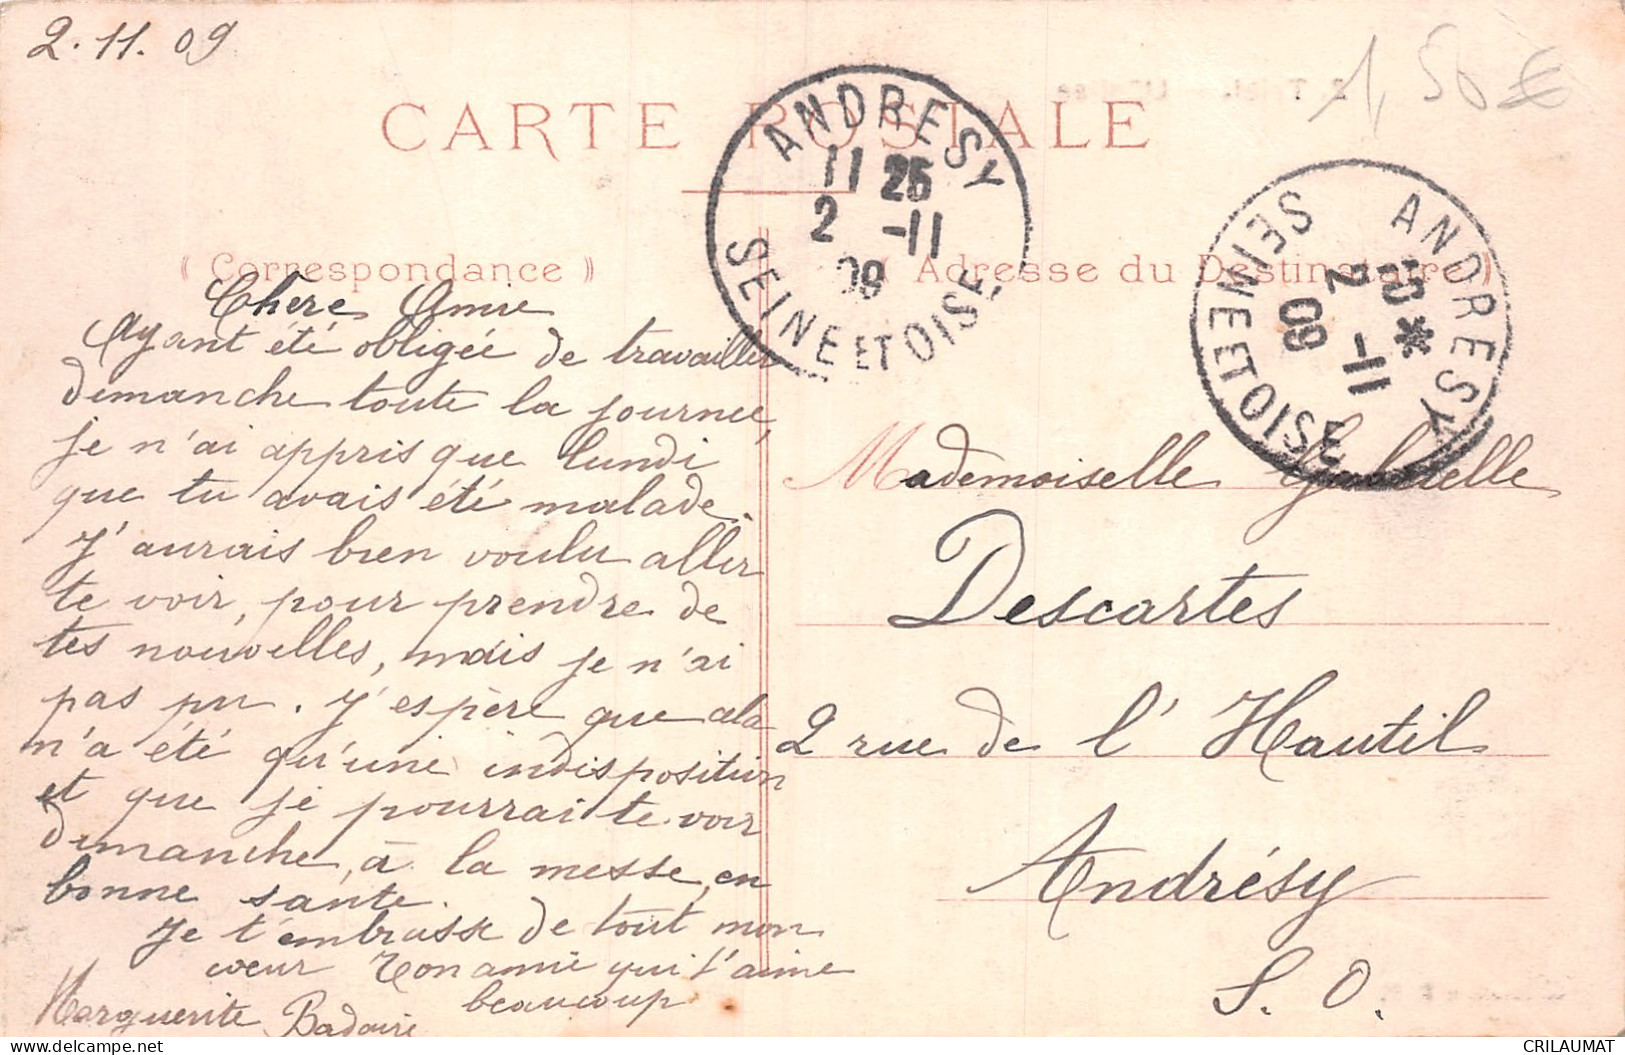 2.11.09
1,50 €
CARTE POSTALE
ANDRESY
11 25
2 -11
09
SEINE ET OISE
ANDRESY
10 *
2 -11
09
SEINE ET OISE
( Correspondance )
Chère Amie
Ayant été obligée de travailler
dimanche toute la journée,
je n'ai appris que lundi
que tu avais été malade.
J'aurais bien voulu aller
te voir, pour prendre de
tes nouvelles, mais je n'ai
pas pu. J'espère que cela
n'a été qu'une indisposition
et que je pourrai te voir
dimanche, à la messe, en
bonne santé.
Je t'embrasse de tout mon
coeur Ton amie qui t'aime
beaucoup
Marguerite Badaire
( Adresse du Destinataire )
Mademoiselle Gabrielle
Descartes
2 rue de l'Hautil
Andrésy
S. O.
CRILAUMAT